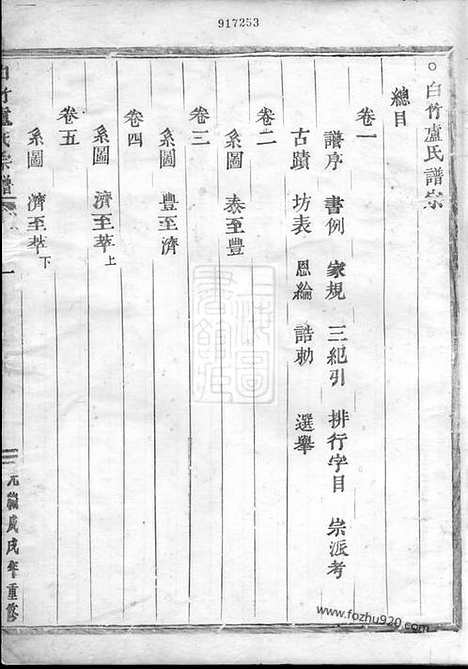 917253
白竹盧氏譜宗
總目
卷一
譜序 書例 家規 三紀引 排行字目 宗派考
古蹟 坊表 恩綸 誥勅 選舉
卷二
系圖 泰至豐
卷三
系圖 豐至濟
卷四
系圖 濟至萃上
卷五
系圖 濟至萃下
白竹盧氏宗譜
一
光緒戊戌年重修
上海圖書館藏
www.fozhu920.com